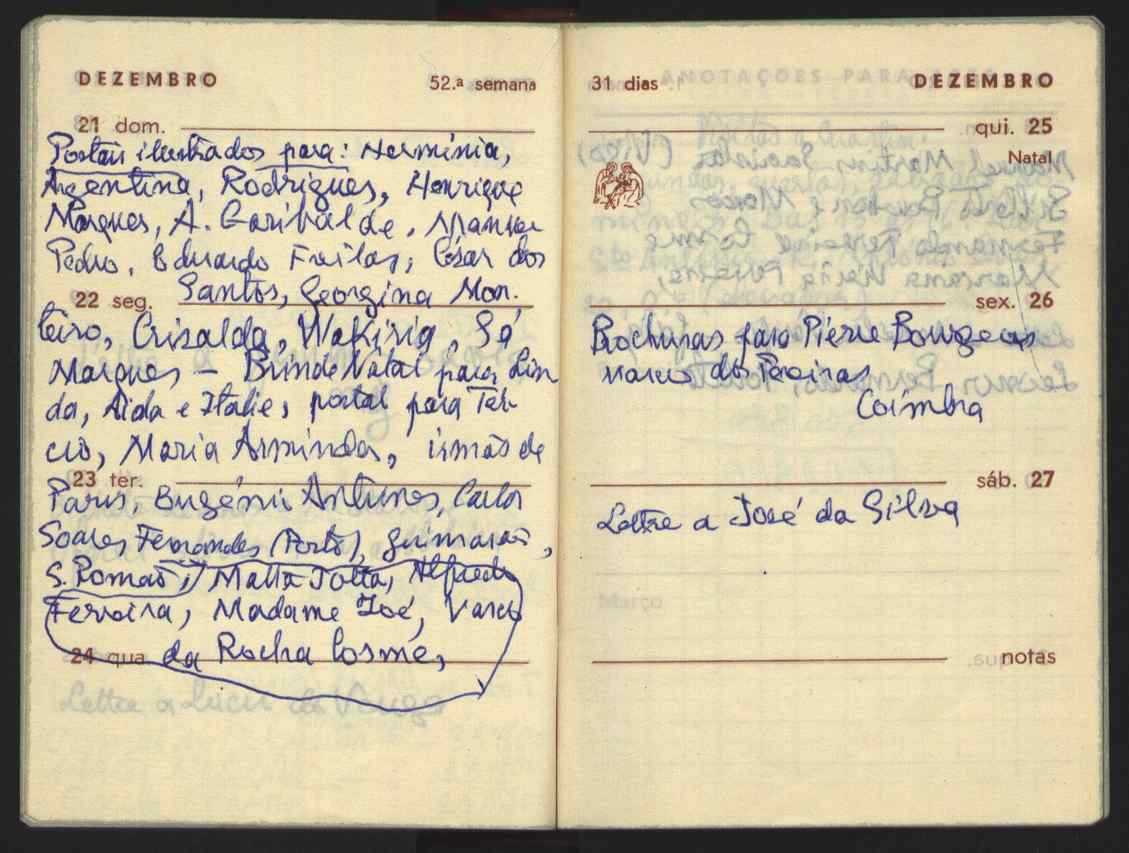 DEZEMBRO 52.ª semana
21 dom.
Postais ilustrados para: Hermínia,
Argentina, Rodrigues, Henrique
Marques, A. Garibalde, Manuel
Pedro, Eduardo Freitas, César dos
Santos, Georgina Mon-
22 seg.
teiro, Crisalda, Wakiria, Sá
Marques – Brinde Natal para Lin
da, Aida e Italie, postal para Tér-
cio, Maria Arminda, irmãs de
23 ter.
Paris, Eugénia Antunes, Carlos
Soares, Fernandes (Porto), Guimarães,
S. Romão, Malta Jotta, Alfredo
Ferreira, Madame Zoé, Vasco
24 qua.
da Rocha Cosme,
31 dias DEZEMBRO
qui. 25
Natal
sex. 26
Brochuras para Pierre Bourgeois
Pereiras
Coimbra
sáb. 27
Lettre a José da Silva
notas